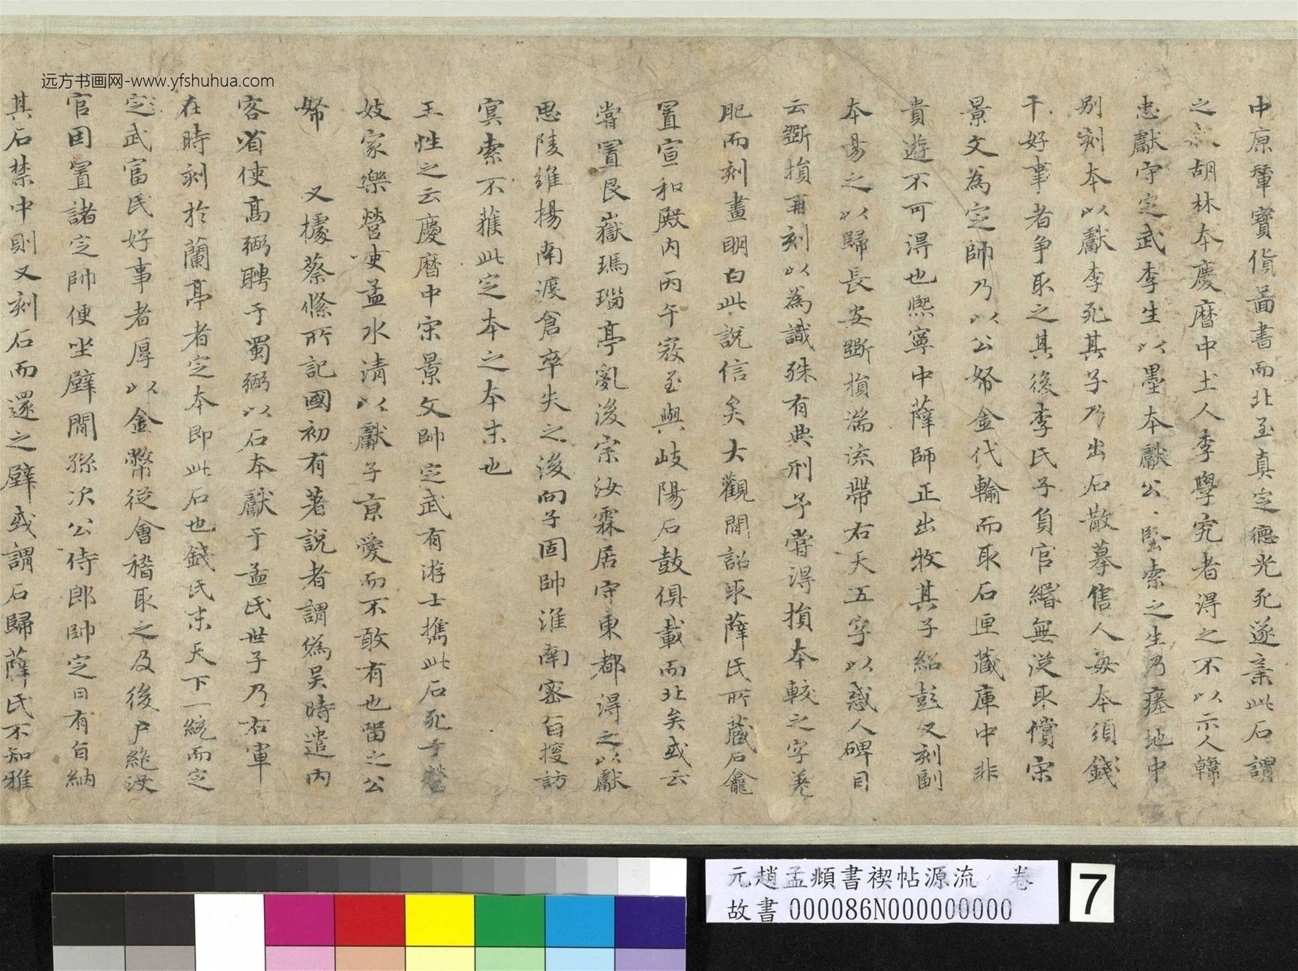 中原輦寶貨圖書而北至真定德光死遂棄此石謂
之 胡林本慶曆中士人李學究者得之不以示人韓
忠獻守定武李生以墨本獻公、堅索之生乃瘞地中
别刻本以獻李死其子乃出石散摹售人每本須錢
千好事者争取之其後李氏子負官緡無從取償宋
景文為定帥乃以公帑金代輸而取石匣藏庫中非
貴遊不可得也熙寧中薛師正出牧其子紹彭又刻副
本易之以歸長安斷損湍流帶右天五字以惑人碑目
云斷損再刻以為識殊有典刑予嘗得損本較之字羗
肥而刻畫明白此說信矣大觀間詔取薛氏所藏石龕
置宣和殿内丙午寇至與岐陽石鼓俱載而北矣或云
嘗置艮嶽瑪瑙亭亂後宗汝霖居守東都得之以獻
思陵維揚南渡倉卒失之後向子固帥淮南密旨搜訪
冥索不獲此定本之本末也
王性之云慶曆中宋景文帥定武有游士携此石死于營
妓家樂營使孟水清以獻子京愛而不敢有也留之公
帑 又據蔡絛所記國初有著說者謂為吳時遣内
客省使高弼聘于蜀弼以石本獻于孟氏世子乃右軍
在時刻於蘭亭者定本即此石也錢氏末天下一統而定
定武富民好事者厚以金幣從會稽取之及後户絶没
官因置諸定帥便坐壁間孫次公侍郎帥定日有旨納
其石禁中則又刻石而還之壁或謂石歸薛氏不知雅
远方书画网-www.yfshuhua.com
元趙孟頫書禊帖源流 卷
故書 000086N000000000
7